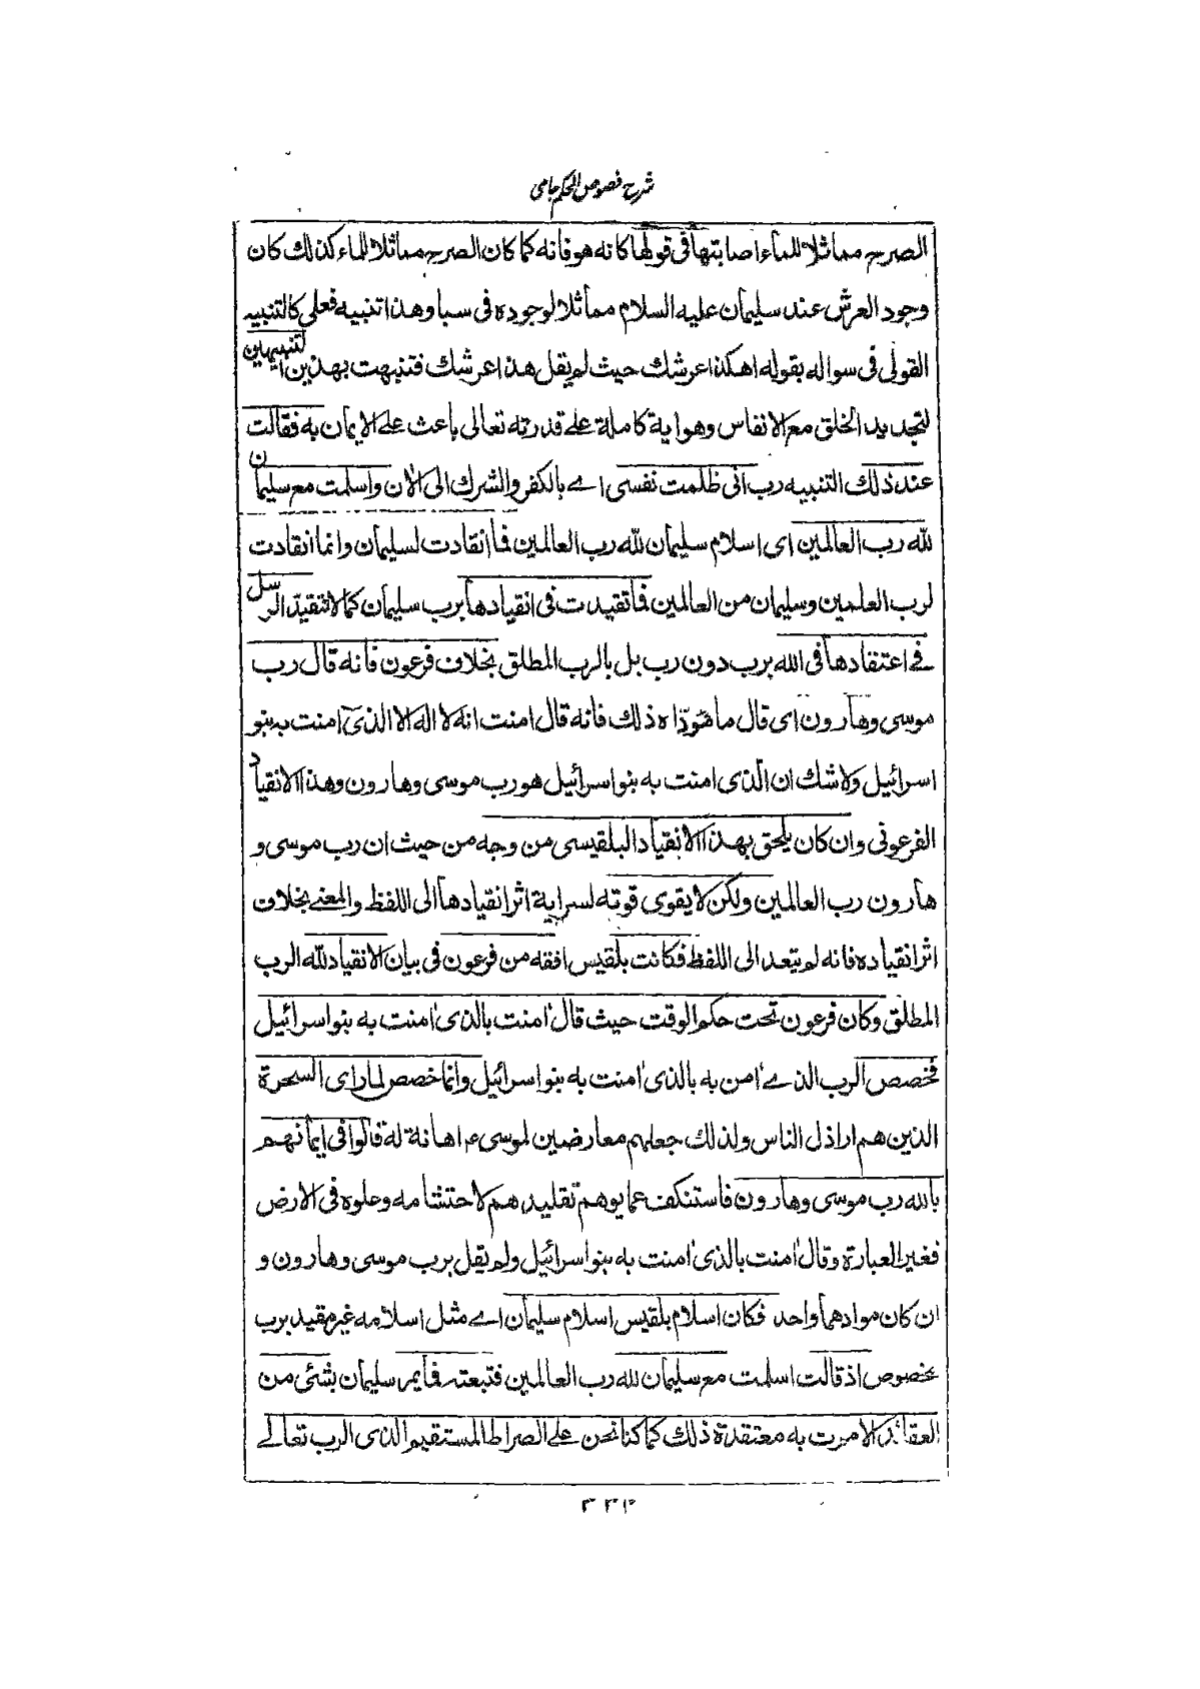 شرح فصوص الحکم جامی
الصرح مماثلا للماء اصابتها فی قولها کانه هو فانه کما کان الصرح مماثلا للماء کذلك کان
وجود العرش عند سلیمان علیه السلام مماثلا لوجوده فی سبا وهذا تنبیه فعلی کالتنبیه
القولی فی سواله بقوله اهکذا عرشك حیث لم یقل هذا عرشك فتنبهت بهذین التنبیهین
لتجدید الخلق مع الانفاس وهو ایة کاملة علے قدرته تعالی باعث علے الایمان به فقالت
عند ذلك التنبیه رب انی ظلمت نفسی اے بالکفر والشرك الی الاٰن واسلمت مع سلیمان
لله رب العالمین ای اسلام سلیمان لله رب العالمین فما انقادت لسلیمان وانما انقادت
لرب العلمین وسلیمان من العالمین فما تقیدت فی انقیادها برب سلیمان کما لا تتقید الرسل
فے اعتقادها فی الله برب دون رب بل بالرب المطلق بخلاف فرعون فانه قال رب
موسی وهارون ای قال ما هو ذاه ذلك فانه قال امنت انه لا اله الا الذی امنت به بنو
اسرائیل ولا شك ان الذی امنت به بنو اسرائیل هو رب موسی وهارون وهذا الانقیاد
الفرعونی وان کان یلحق بهذا الانقیاد البلقیسی من وجه من حیث ان رب موسی و
هارون رب العالمین ولکن لا یقوی قوته لسرایة اثر انقیادها الی اللفظ والمعنے بخلاف
اثر انقیاده فانه لم یتعد الی اللفظ فکانت بلقیس افقه من فرعون فی بیان الانقیاد لله الرب
المطلق وکان فرعون تحت حکم الوقت حیث قال اٰمنت بالذی اٰمنت به بنو اسرائیل
فخصص الرب الذے اٰمن به بالذی اٰمنت به بنو اسرائیل وانما خصص لما رای السحرة
الذین هم اراذل الناس ولذلك جعلهم معارضین لموسی ء اهانة له قالوا فی ایمانهم
بالله رب موسی وهارون فاستنکف عما یوهم تقلیدهم لاحتشامه وعلوه فی الارض
فغیر العبارة وقال اٰمنت بالذی اٰمنت به بنو اسرائیل ولم یقل برب موسی وهارون و
ان کان موادهما واحد فکان اسلام بلقیس اسلام سلیمان اے مثل اسلامه غیر مقید برب
بخصوص اذ قالت اسلمت مع سلیمان لله رب العالمین فتبعته فما یمر سلیمان بشئی من
العقائد الا مرت به معتقدة ذلك کما کنا نحن علے الصراط المستقیم الذی الرب تعالے
۳۳۴